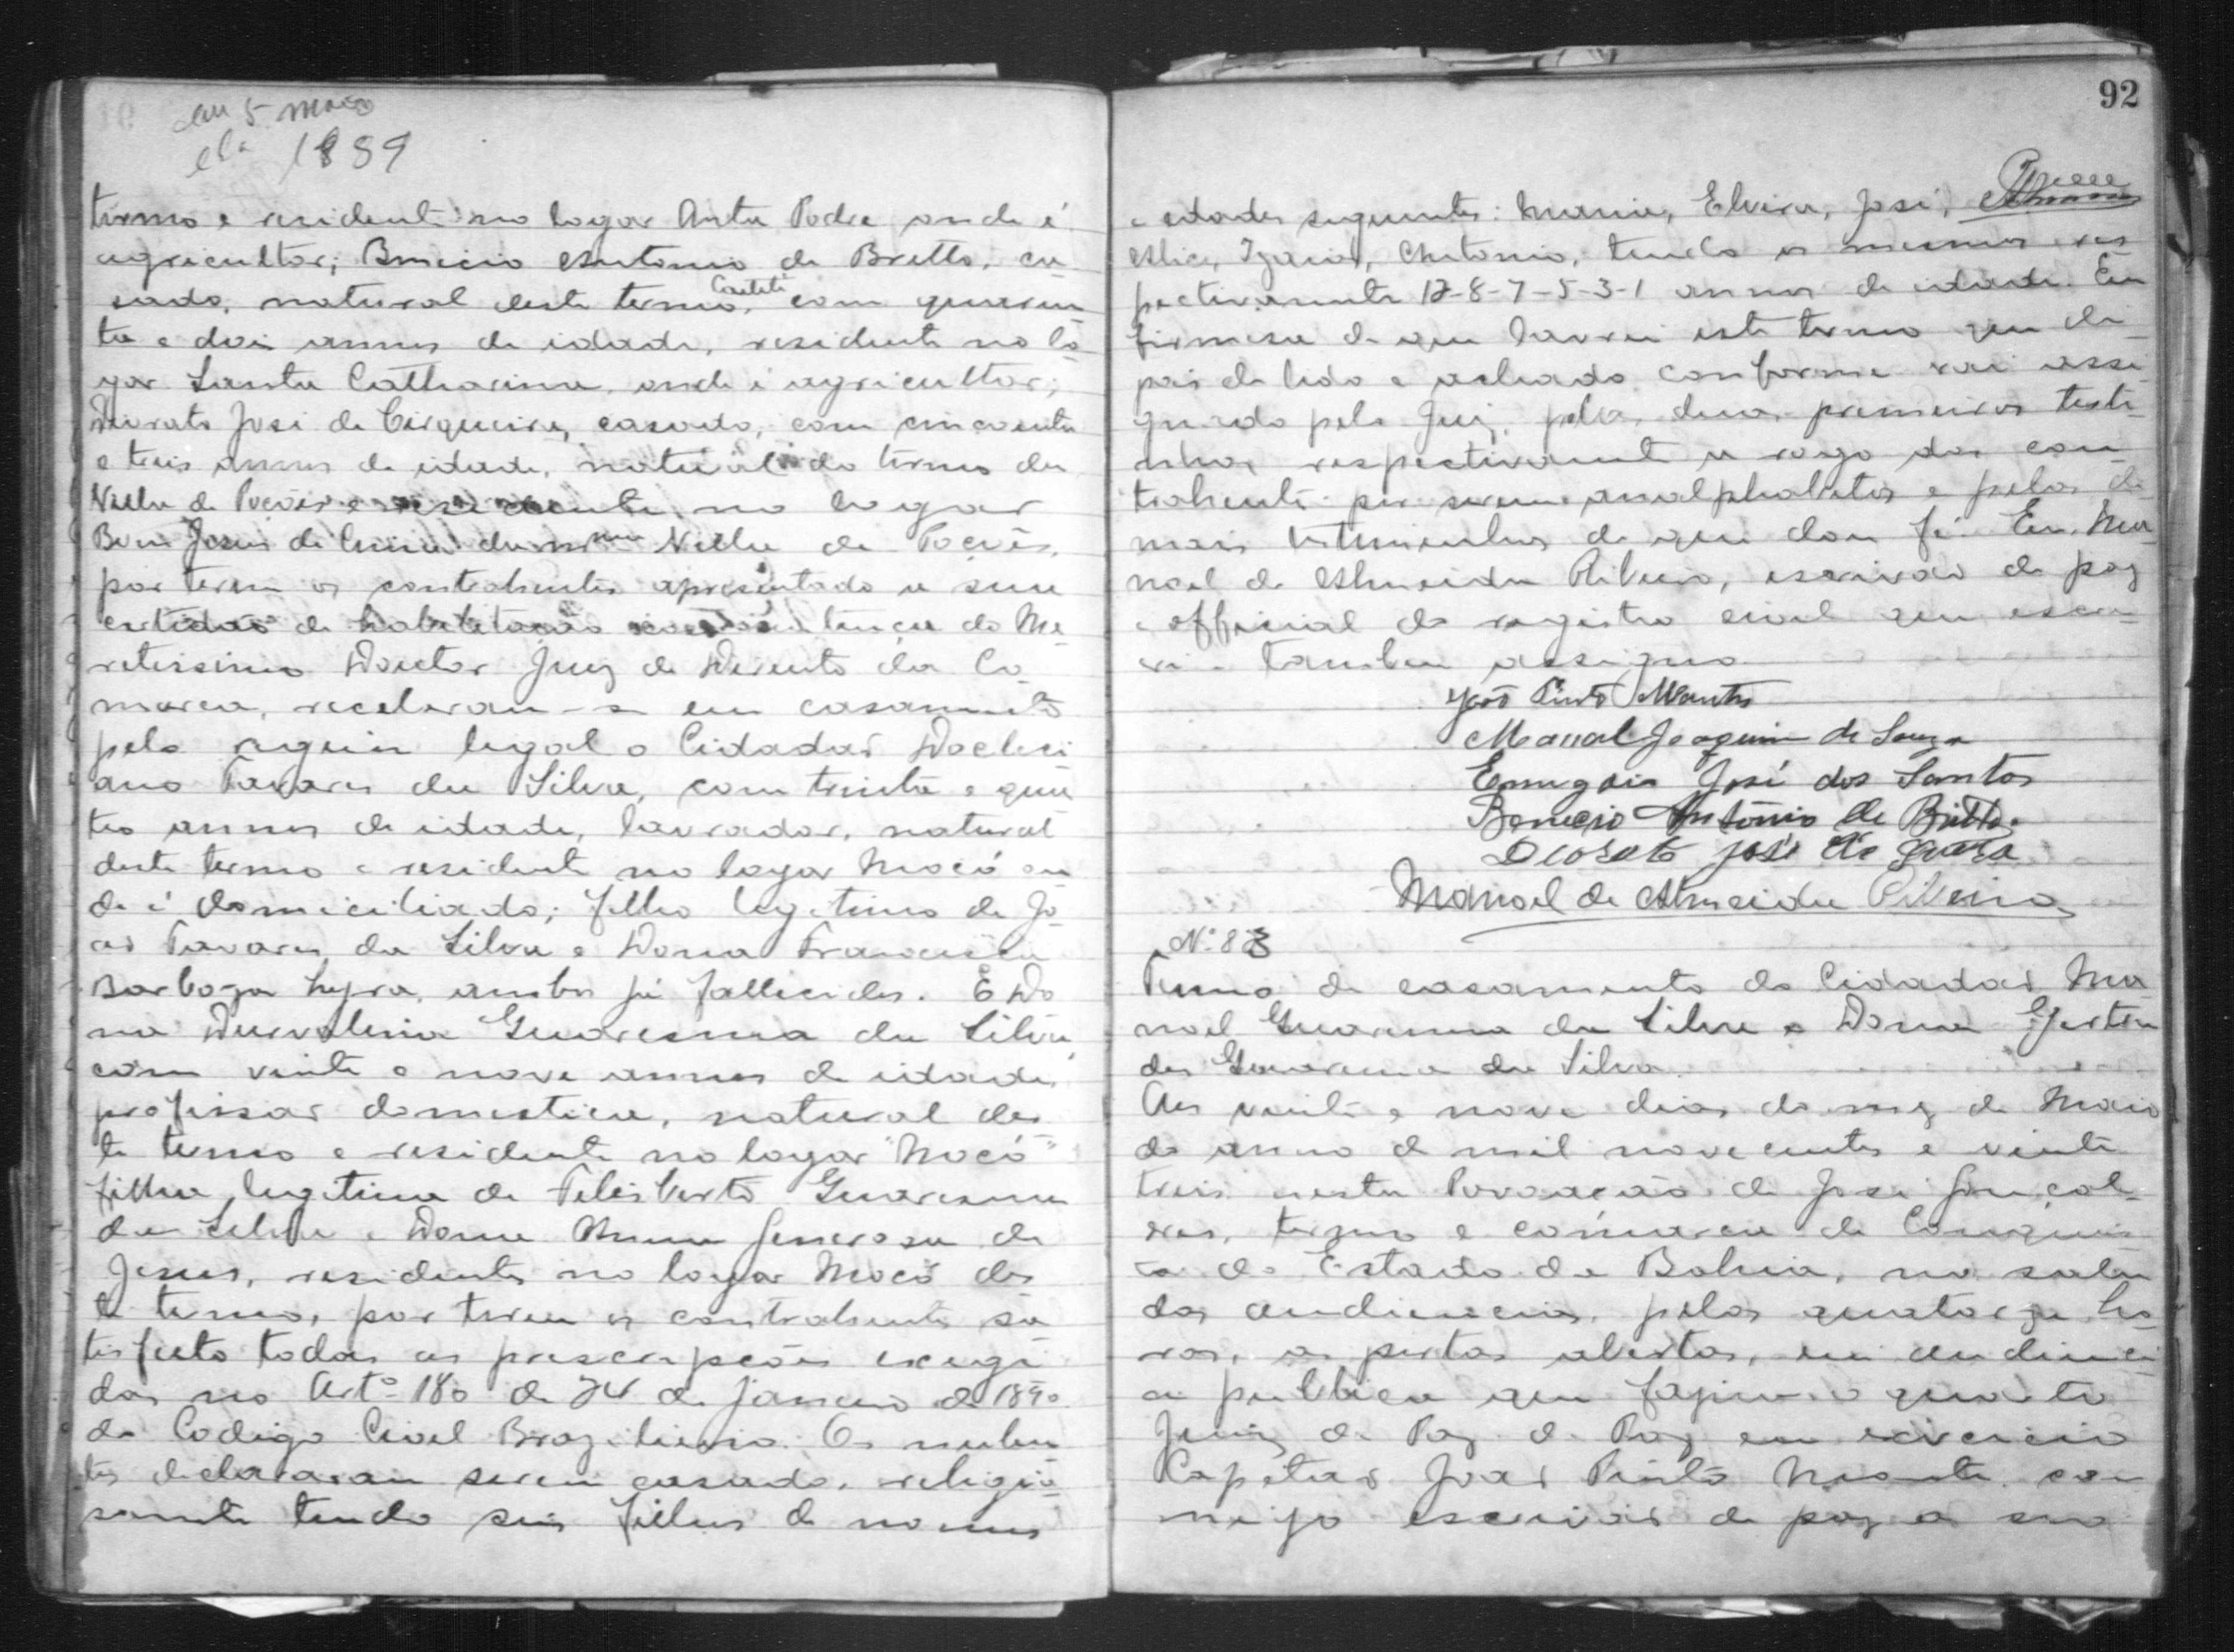 1889
termo e residente no logar Anta Podre onde é
agricultor; Benicio Antonio de Britto, ca-
sado, natural deste termo, Caetité com quaren-
ta e dois annos de idade, residente no lo-
gar Santa Catharina, onde é agricultor;
Deorato José de Cirqueira, casado, com cincoenta
e treis annos de idade, natural do termo da
Villa de Poções e residente no logar
Bom Jesus de Villa de Poções,
por terem os contrahentes apresentado a sua
certidão de habilitação do Me-
retissimo Doutor Juiz de Direito da Co-
marca, receberam-se em casamento
pelo regimen legal o Cidadão Docleci-
ano Tavares da Silva, com trinta e qua-
tro annos de idade, lavrador, natural
deste termo e residente no logar Mocó on-
de é domiciliado; filho legitimo de Jo-
ão Tavares da Silva e Dona Francisca
Barboza Lyra, ambos já fallecidos. E Do-
na Durvalina Guaresma da Silva,
com vinte e nove annos de idade,
profissão domestica, natural des-
te termo e residente no logar "Mocó"
filha legitima de Felisberto Guaresma
da Silva e Dona Anna Generosa de
Jesus, residentes no logar Mocó des-
te termo, por terem os contrahentes sa-
tisfeito todas as prescripções exegi-
das no Artº 180 de 24 de janeiro de 1890
do Codigo Civel Brazileiro. Os nuben-
tes declararam serem casado, religio-
samente tendo seis filhos de nomes
92
e edades seguintes: Maria, Elvira, José,
Alice, Izaias, Antonio, tendo os mesmos res-
pectivamente 12-8-7-5-3-1 annos de idade. Em
firmesa do que lavrei este termo que de-
pois de lido e achado conforme vai assi-
gnado pelo Juiz, pelas duas primeiras teste-
nhas respectivamente a rogo dos con-
trahentes por serem analphabetos e pelos de-
mais testemunhas do que dou fé. Eu Ma-
noel de Almeida Ribeiro, escrivão de paz
e official do registro civel que escre-
vi e tambem assigno
João Pinto Mantes
Manoel Joaquim de Souza
José dos Santos
Benicio Antonio de Britto
Deorato José de
Manoel de Almeida Ribeiro
Nº 83
Termo de casamento do Cidadão Ma-
noel Guaresma da Silva e Dona Gertru-
des Guaresma da Silva.
Aos vinte e nove dias do mez de Maio
do anno de mil novecentos e vinte
treis nesta Povoação de José Gonçal-
ves, termo e comarca de Conquis-
ta do Estado da Bahia, na sala
das audiencias, pelas quatorze ho-
ras, as portas abertas, em audienci-
a publica que fazia o quarto
Juiz de Paz de Paz em exercicio
Capitão João Pinto com-
migo escrivão de paz a seu